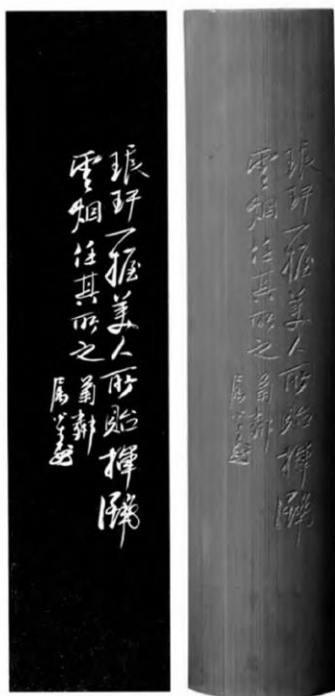 琅玕一握美人所貽揮灑
雲烟任其所之 菊鄰
属
琅玕一握美人所貽揮灑
雲烟任其所之 菊鄰
属